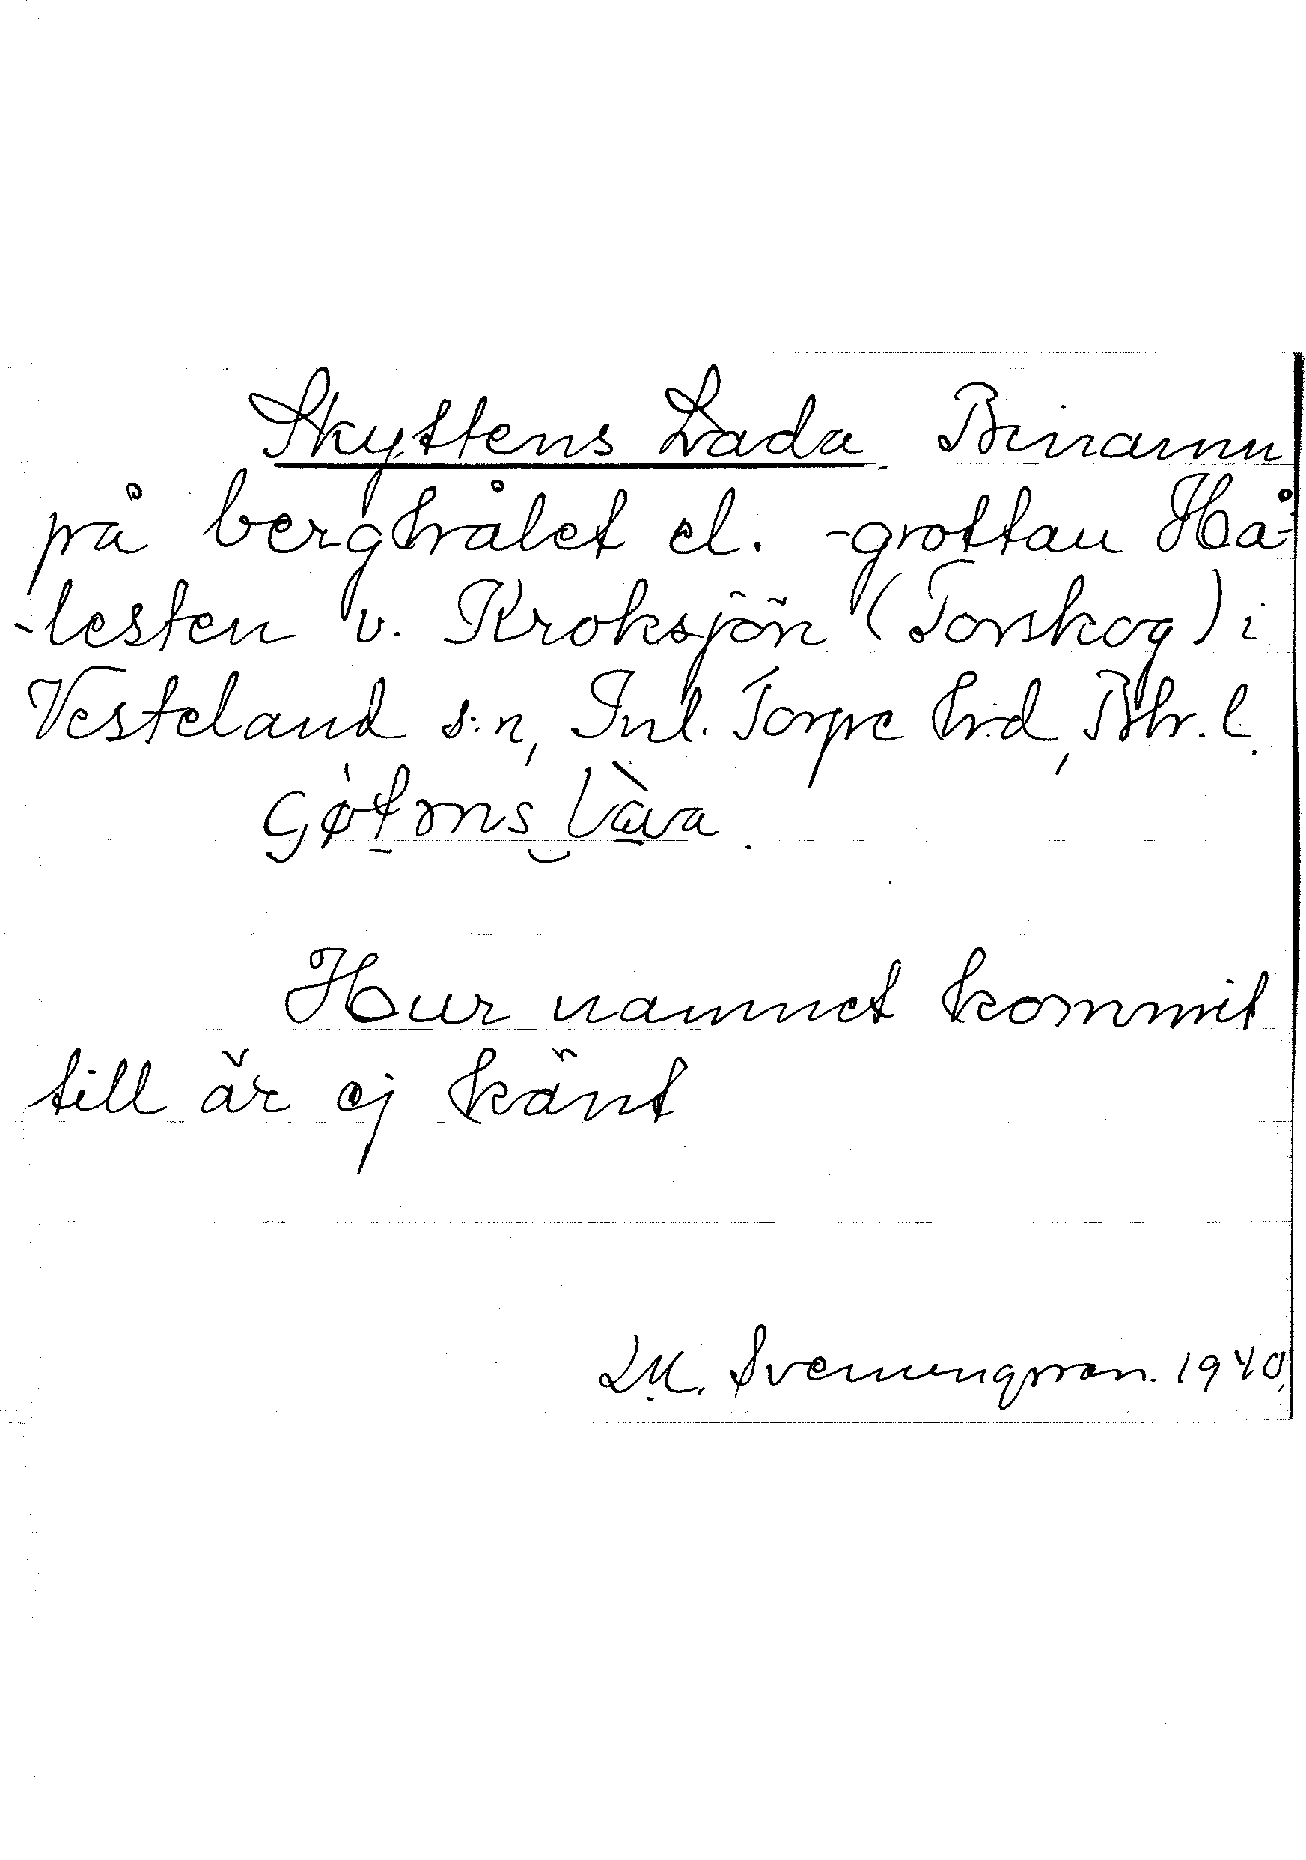 Skyttens Lada. Binamn
på berghålet el. -grottan Hå-
-lesten v. Kroksjön (Torskog) i
Vesteland s:n, Inl. Torpe hd, Bhr. l.
Hur namnet kommit
till är ej känt
LM. Svenungsson. 1940.